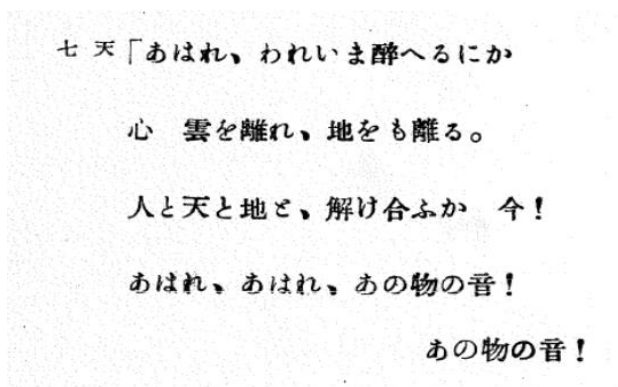 七 天「あはれ、われいま醉へるにか
心　雲を離れ、地をも離る。
人と天と地と、解け合ふか　今！
あはれ、あはれ、あの物の音！
あの物の音！